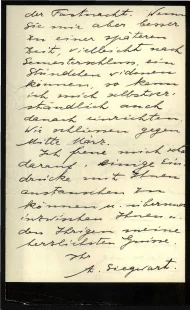 der Fastnacht. Wenn
Sie mir aber besser
zu einer späteren
Zeit, vielleicht nach
Semesterschluss, ein
Stündchen widmen
können, so kann
ich mich selbstver-
ständlich auch
danach einrichten.
Wir schliessen gegen
Mitte März.
Ich freue mich
darauf einige Ein-
drücke mit Ihnen
austauschen zu
können u. übermittle
inzwischen Ihnen u.
den Ihrigen meine
herzlichsten Grüsse.
Ihr
A. Siegwart.